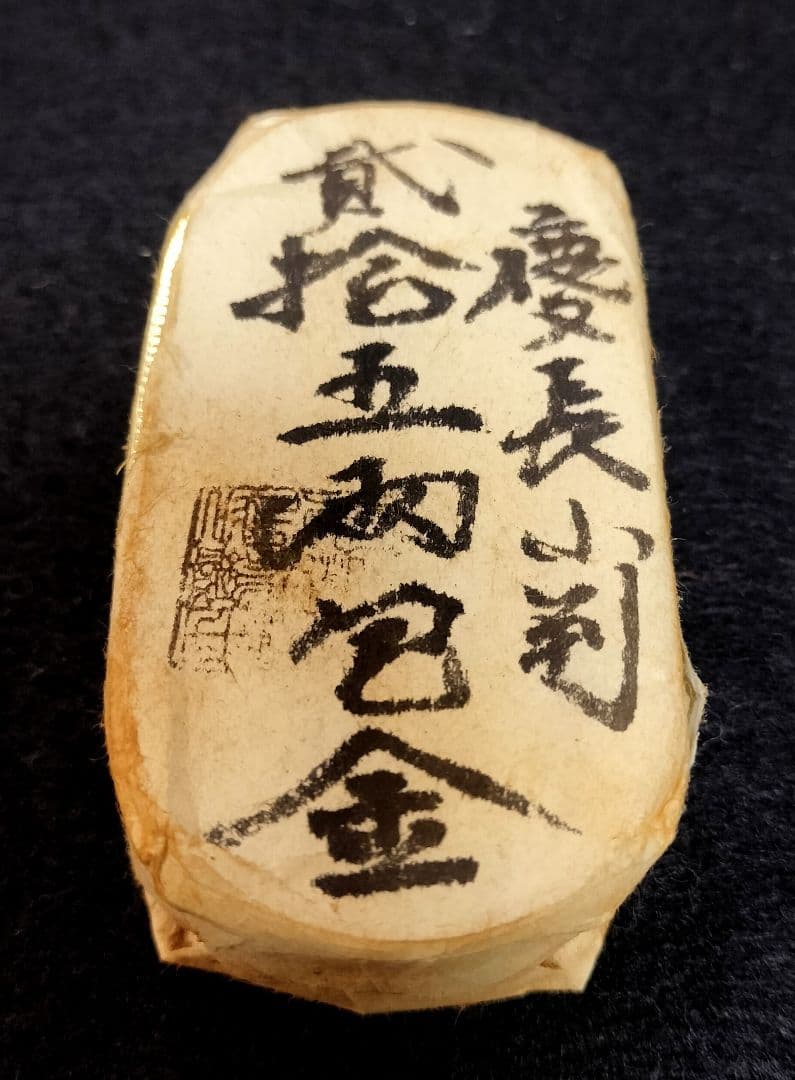 慶長小判
貳拾五两包金